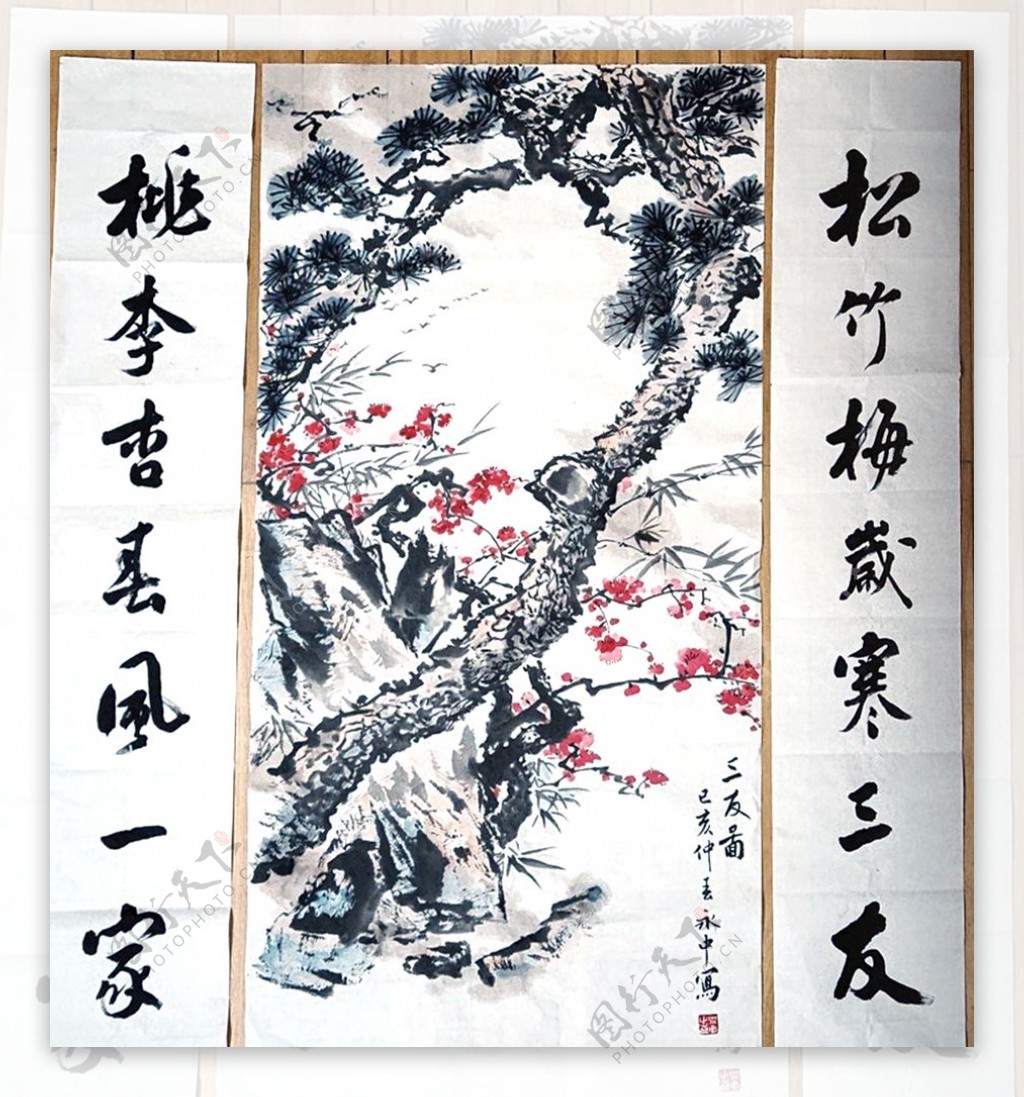 松竹梅歲寒三友
三友圖
己亥仲春永中寫
桃李杏春風一家
图行天下
PHOTOPHOTO.CN
图行天下
PHOTOPHOTO.CN
图行天下
PHOTOPHOTO.CN
图行天下
PHOTOPHOTO.CN